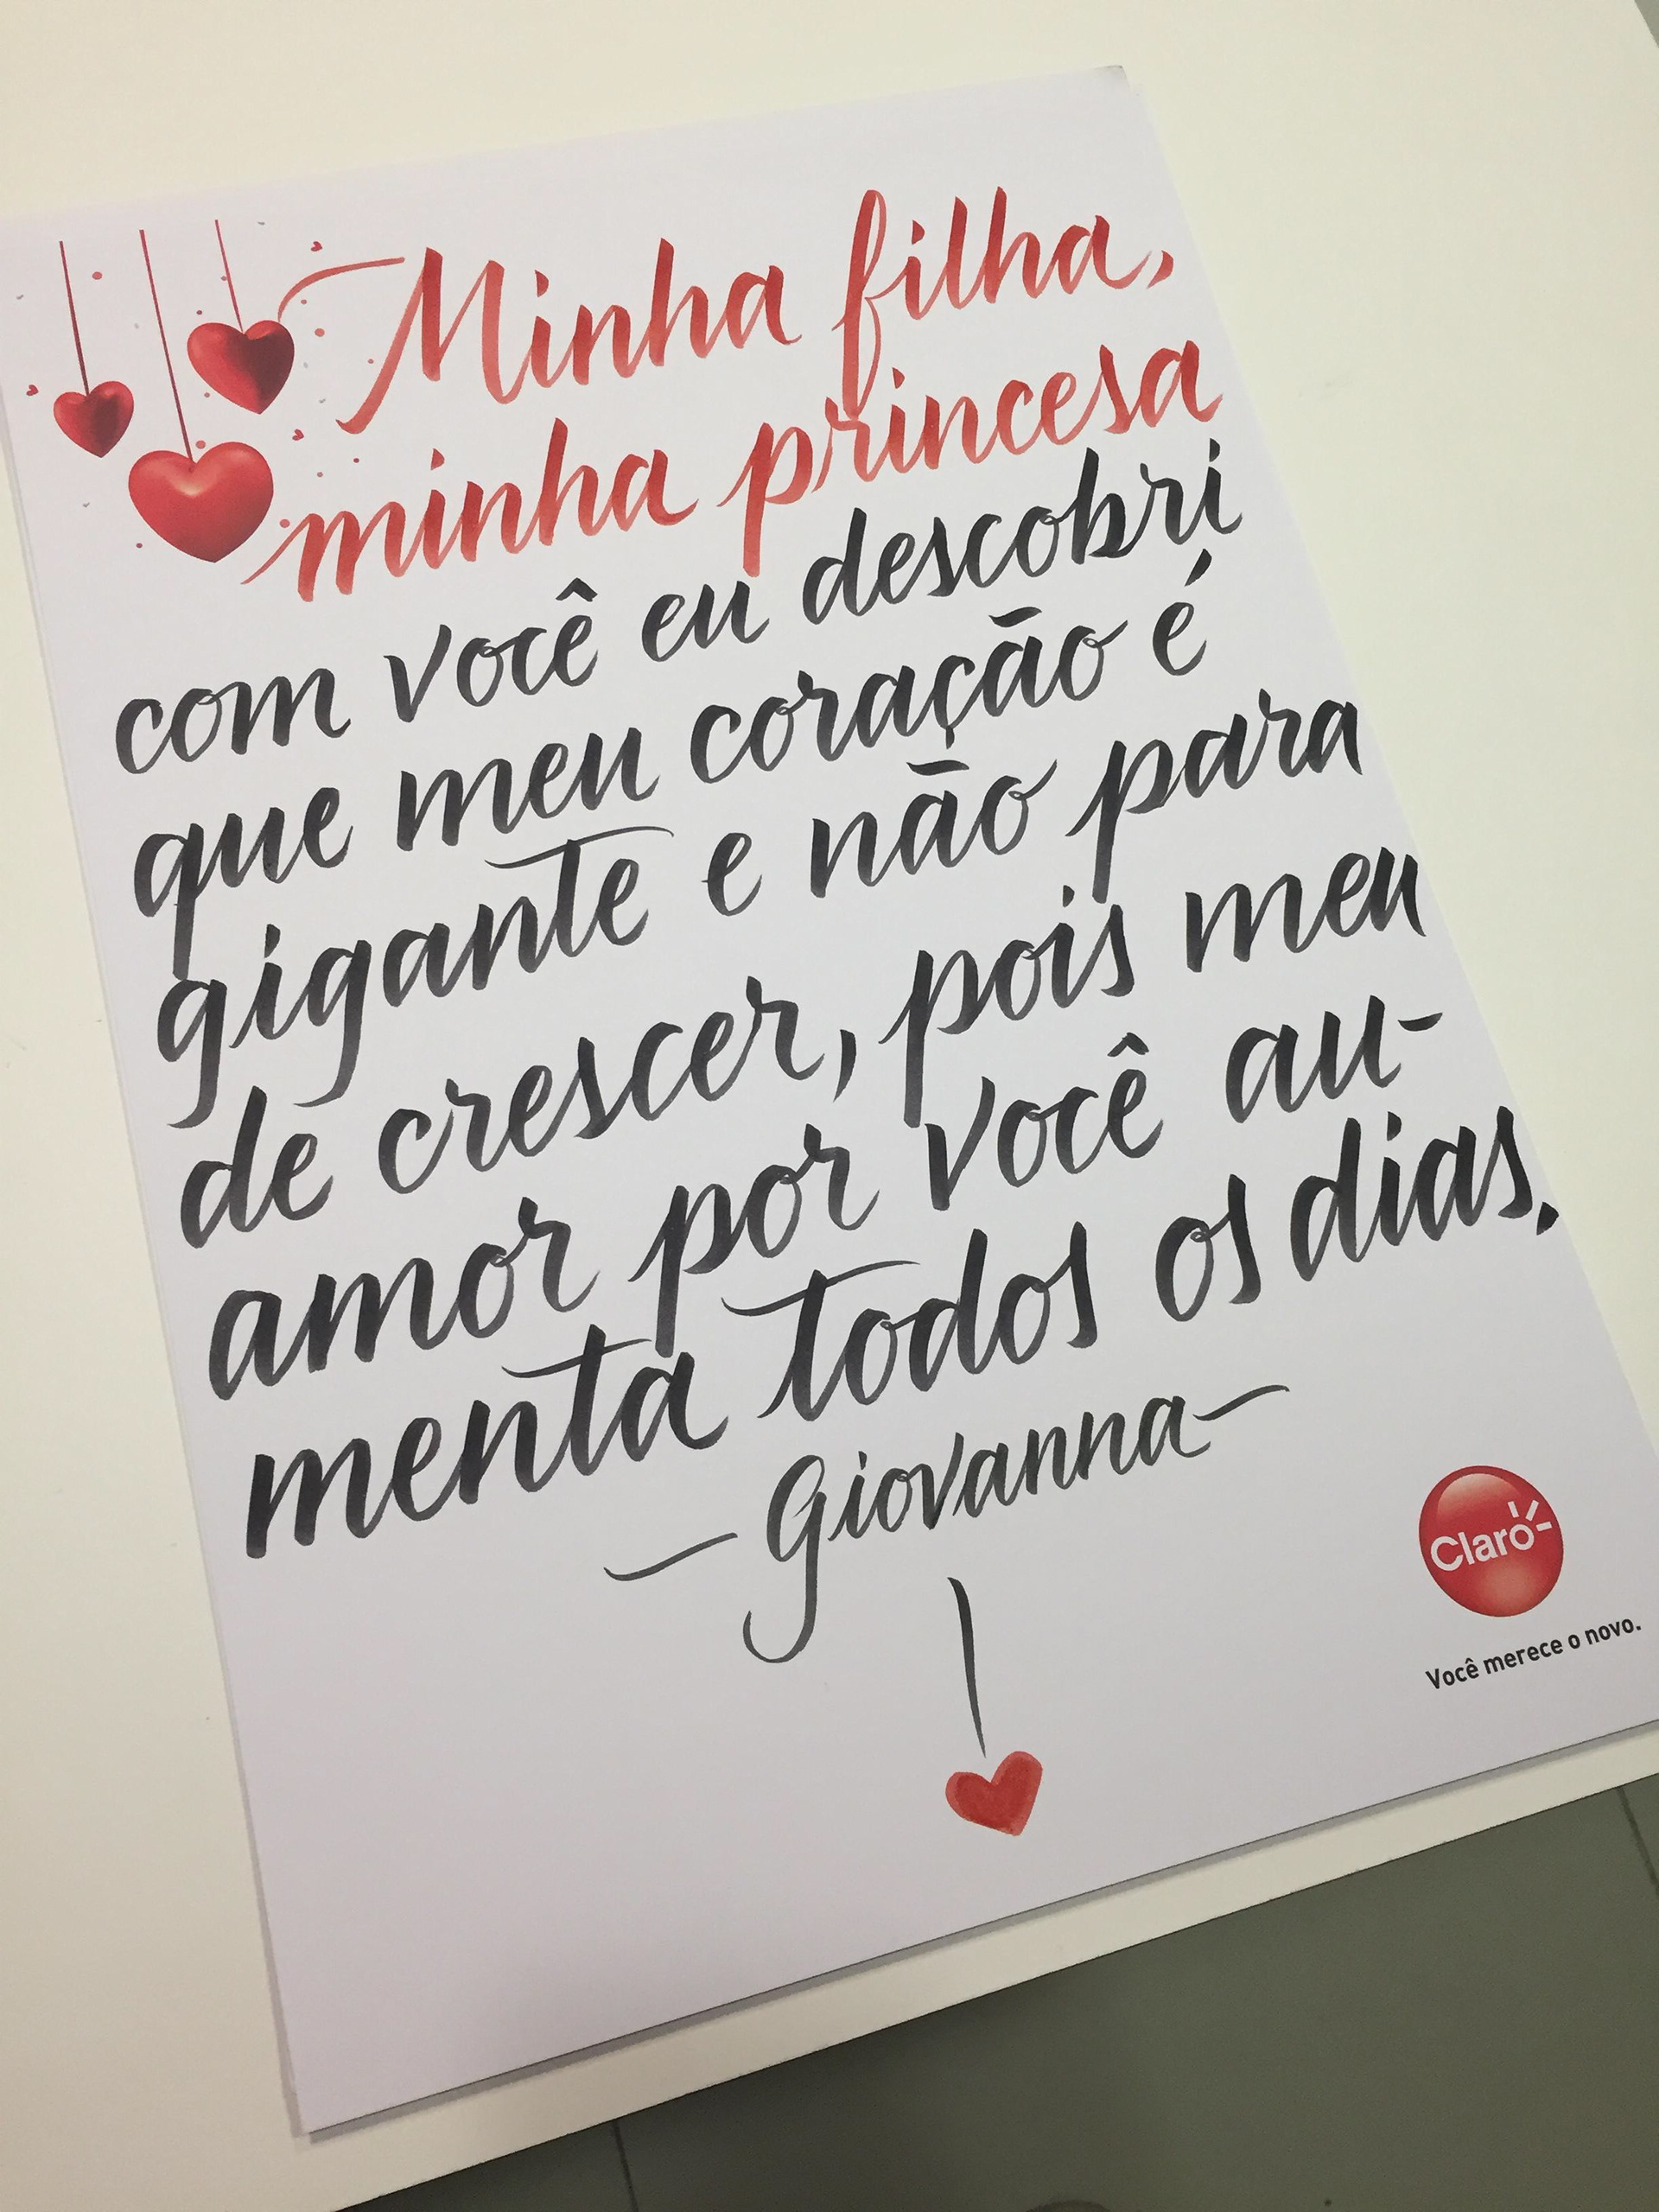 Minha filha,
minha princesa
com você eu descobri
que meu coração é
gigante e não para
de crescer, pois meu
amor por você au-
menta todos os dias.
— Giovanna —
Claro
Você merece o novo.